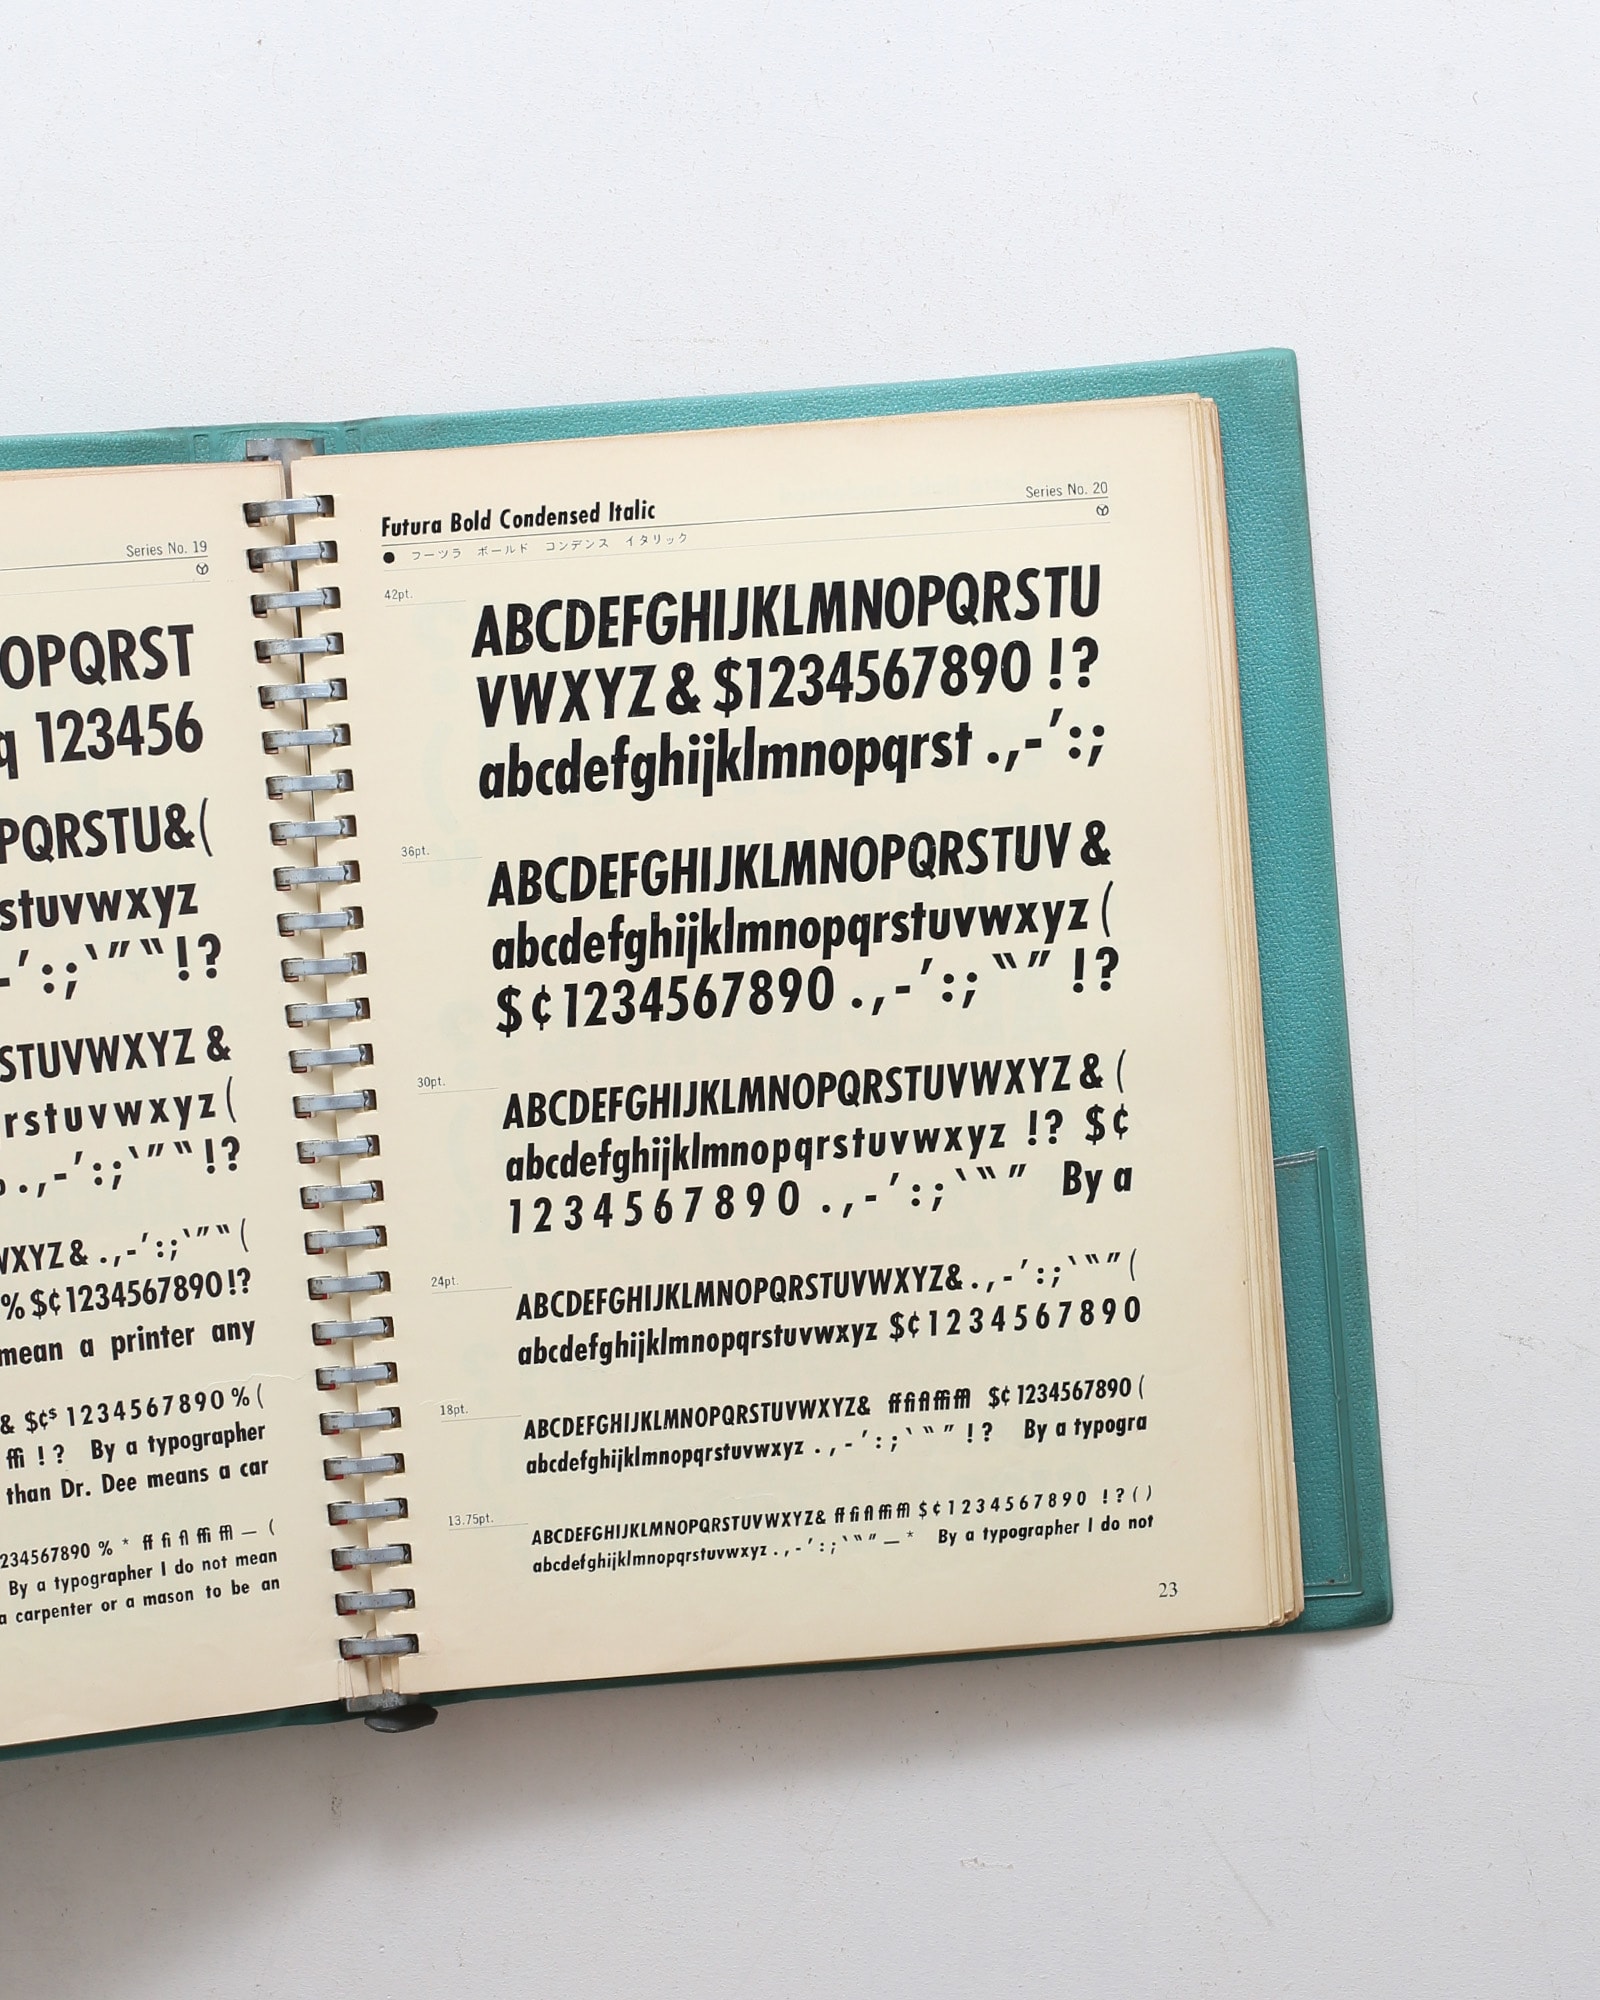 Series No. 19
OPQRST
q 123456
PQRSTU&(
stuvwxyz
-’:;‘”“!?
STUVWXYZ &
rstuvwxyz(
.,-’:;‘”“!?
WXYZ& .,-’:;‘”“(
% $¢1234567890!?
mean a printer any
& $¢$ 1234567890%(
ffi ! ? By a typographer
than Dr. Dee means a car
234567890 % * ff fi fl ffi ffl — (
By a typographer I do not mean
a carpenter or a mason to be an
Futura Bold Condensed Italic
Series No. 20
● フーツラ ボールド コンデンス イタリック
42pt.
ABCDEFGHIJKLMNOPQRSTU
VWXYZ & $1234567890 !?
abcdefghijklmnopqrst .,-’:;
36pt.
ABCDEFGHIJKLMNOPQRSTUV &
abcdefghijklmnopqrstuvwxyz (
$¢1234567890 .,-’:; “” !?
30pt.
ABCDEFGHIJKLMNOPQRSTUVWXYZ & (
abcdefghijklmnopqrstuvwxyz !? $¢
1234567890 .,-’:;‘“” By a
24pt.
ABCDEFGHIJKLMNOPQRSTUVWXYZ& .,-’:;‘“”(
abcdefghijklmnopqrstuvwxyz $¢1234567890
18pt.
ABCDEFGHIJKLMNOPQRSTUVWXYZ& ff fi fl ffi ffl $¢ 1234567890 (
abcdefghijklmnopqrstuvwxyz .,-’:;‘“” !? By a typogra
13.75pt.
ABCDEFGHIJKLMNOPQRSTUVWXYZ& ff fi fl ffi ffl $¢1234567890 !?()
abcdefghijklmnopqrstuvwxyz .,-’:;‘“”—* By a typographer I do not
23